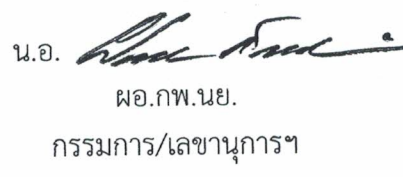 น.อ.
ผอ.กพ.นย.
กรรมการ/เลขานุการฯ